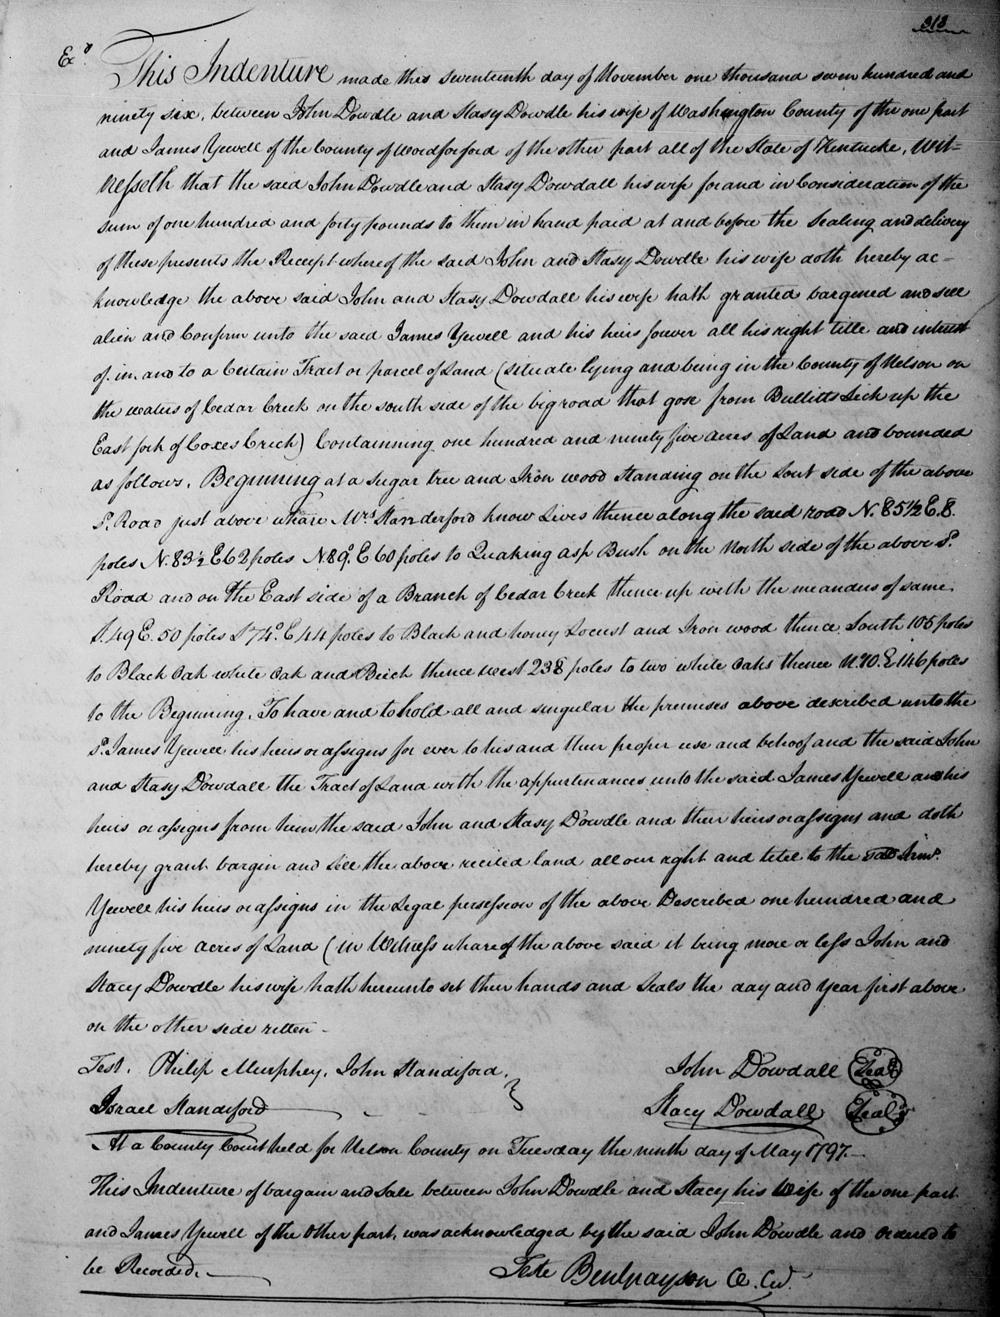 313
Exd.
This Indenture made this seventeenth day of November one thousand seven hundred and
ninety six, between John Dowdle and Stasy Dowdle his wife of Washington County of the one part
and James Yewell of the County of Woodforford of the other part all of the State of Kentucke, Wit-
nesseth that the said John Dowdle and Stasy Dowdall his wife for and in Consideration of the
sum of one hundred and forty pounds to them in hand paid at and before the Sealing and delivery
of these presents the Receipt where of the said John and Stasy Dowdle his wife doth hereby ac-
knowledge the above said John and Stasy Dowdall his wife hath granted bargened and sell
alien and Confirm unto the said James Yewell and his heirs forever all his right title and intrust
of. in. and to a Certain Tract or parcel of Land (situate lying and being in the County of Nelson on
the waters of Cedar Creek on the south side of the big road that gose from Bullitts Lick up the
East fork of Coxes Creek) Containning one hundred and ninety five acres of Land and bounded
as follows. Beginning at a Sugar tree and Iron wood Standing on the Sout side of the above
Sd. Road just above whare Mrs Standerford know Lives thence along the said road N. 85 1/2 E. 8.
poles N. 83 1/2 E 62 poles N. 89. E 60 poles to Quaking asp Bush on the North side of the above Sd.
Road and on the East side of a Branch of Cedar Creek thence up with the meandus of same.
S. 49 E. 50 poles S 74°. E 44 poles to Black and honey Locust and Iron wood thence South 105 poles
to Black Oak white Oak and Beich thence west 238 poles to two white Oaks thence N. 70. E 146 poles
to the Begnning. To have and to hold all and singular the premises above described unto the
Sd. James Yewell his heirs or assigns for ever to his and their proper use and behoof and the said John
and Stasy Dowdall the Tract of Land with the appurtinances unto the said James Yewell and his
heirs or assigns from him the said John and Stasy Dowdle and their heirs or assigns and doth
hereby grant bargin and Sell the above recited land all our right and titel to the
Yewell his heirs or assigns in the Legal persession of the above Described one hundred and
ninety five acres of Land (in Witness whare of the above said it being more or less John and
Stacy Dowdle his wife hath hereunto set their hands and Seals the day and year first above
on the other side ritten -
Test. Philip Murphey, John Standiford, John Dowdall Seal
Israel Standiford Stacy Dowdall Seal
At a County Court held for Nelson County on Tuesday the ninth day of May 1797.
This Indenture of bargain and Sale between John Dowdle and Stacy his Wife of the one part
and James Yewell of the other part, was acknowledged by the said John Dowdle and ordered to
be Recorded.
Teste Ben Grayson C. Cu.